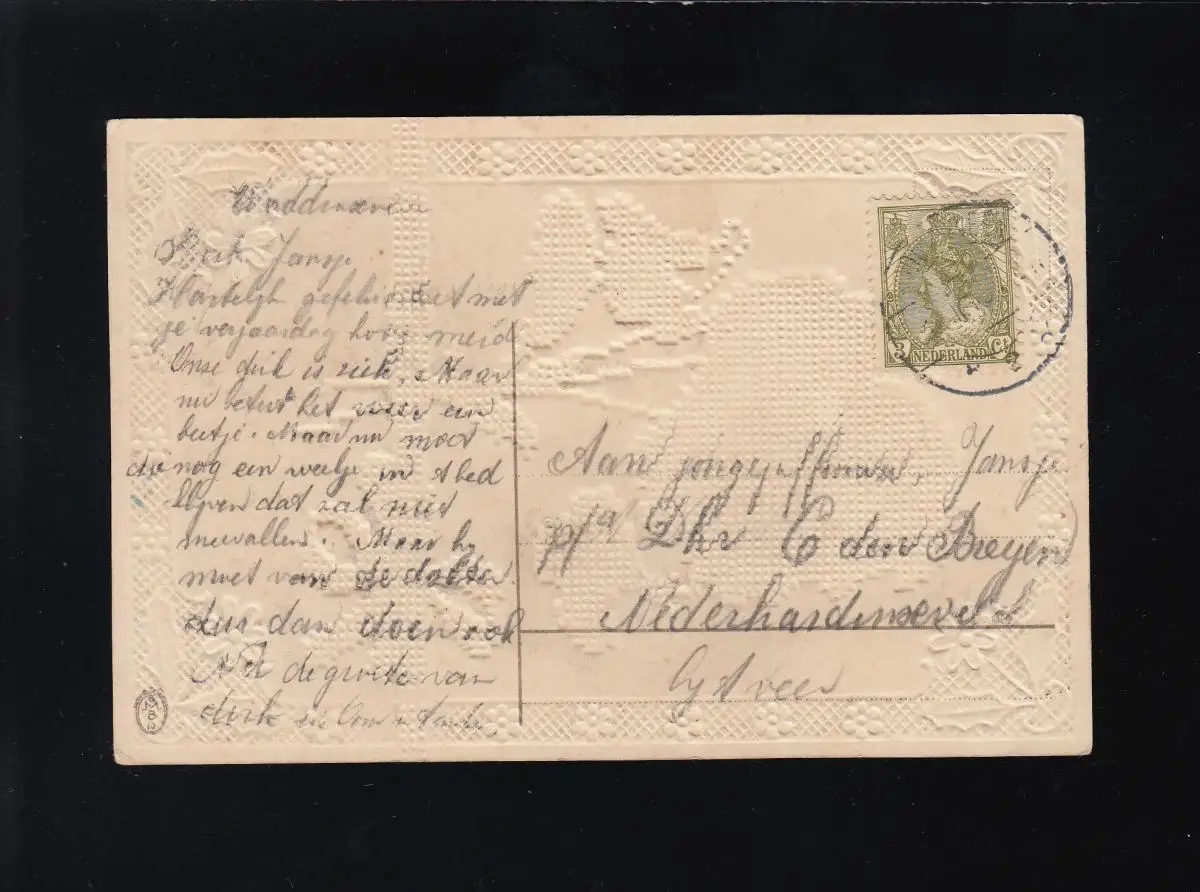 Waddinxveen
Jansje
Hartelijk gefeliciteert met
je verjaardag hoor meid
Onse dirk is ziek. Maar
nu betert het weer een
beetje. Maar nu moet
nog een weekje in t bed
blijven dat zal niet
meevallen. Maar hy
moet van de dokter
dus dan doen ook
Met de groete van
dirk en Oom n tante
3 NEDERLAND Ct
Aan jongejuffrouw Jansje
p/a Dhr C den Breejen
Nederhardinxveld
by t veer